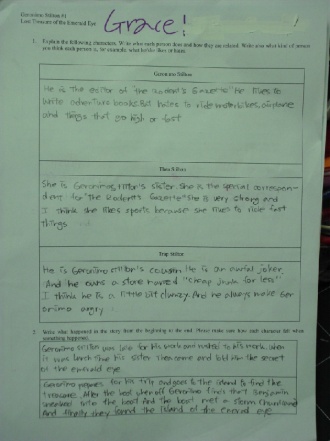 Geronimo Stilton #1
Lost Treasure of the Emerald Eye
Grace!
1. Explain the following characters. Write what each person does and how they are related. Write also what kind of person
you think each person is, for example, what he/she likes or hates.
Geronimo Stilton
He is the editor of the Rodent's Gazette. He likes to
write adventure books. But hates to ride motorbikes, airplane
and things that go high or fast
Thea Stilton
She is Geronimo Stilton's sister. She is the special correspon-
dent for "the Rodent's Gazette" She is very strong and
I think she likes sports because she likes to ride fast
things
Trap Stilton
He is Geronimo stilton's cousin. He is an awful joker.
And he owns a store named "cheap junk for less"
I think he is a little bit clumzy. And he always make Ger
onimo angry.
2. Write what happened in the story from the beginning to the end. Please make sure how each character felt when
something happened.
Geronimo Stilton was late for his work and rushed to his work. When
it was lunch time his sister Thea came and told him the secret
of the emerald eye.
Geronimo prepares for his trip and goes to the island to find the
treasure. After the boat when off Geronimo finds that Benjamin
sneaked into the boat And the boat met a storm
And finally they found the island of the emerald eye